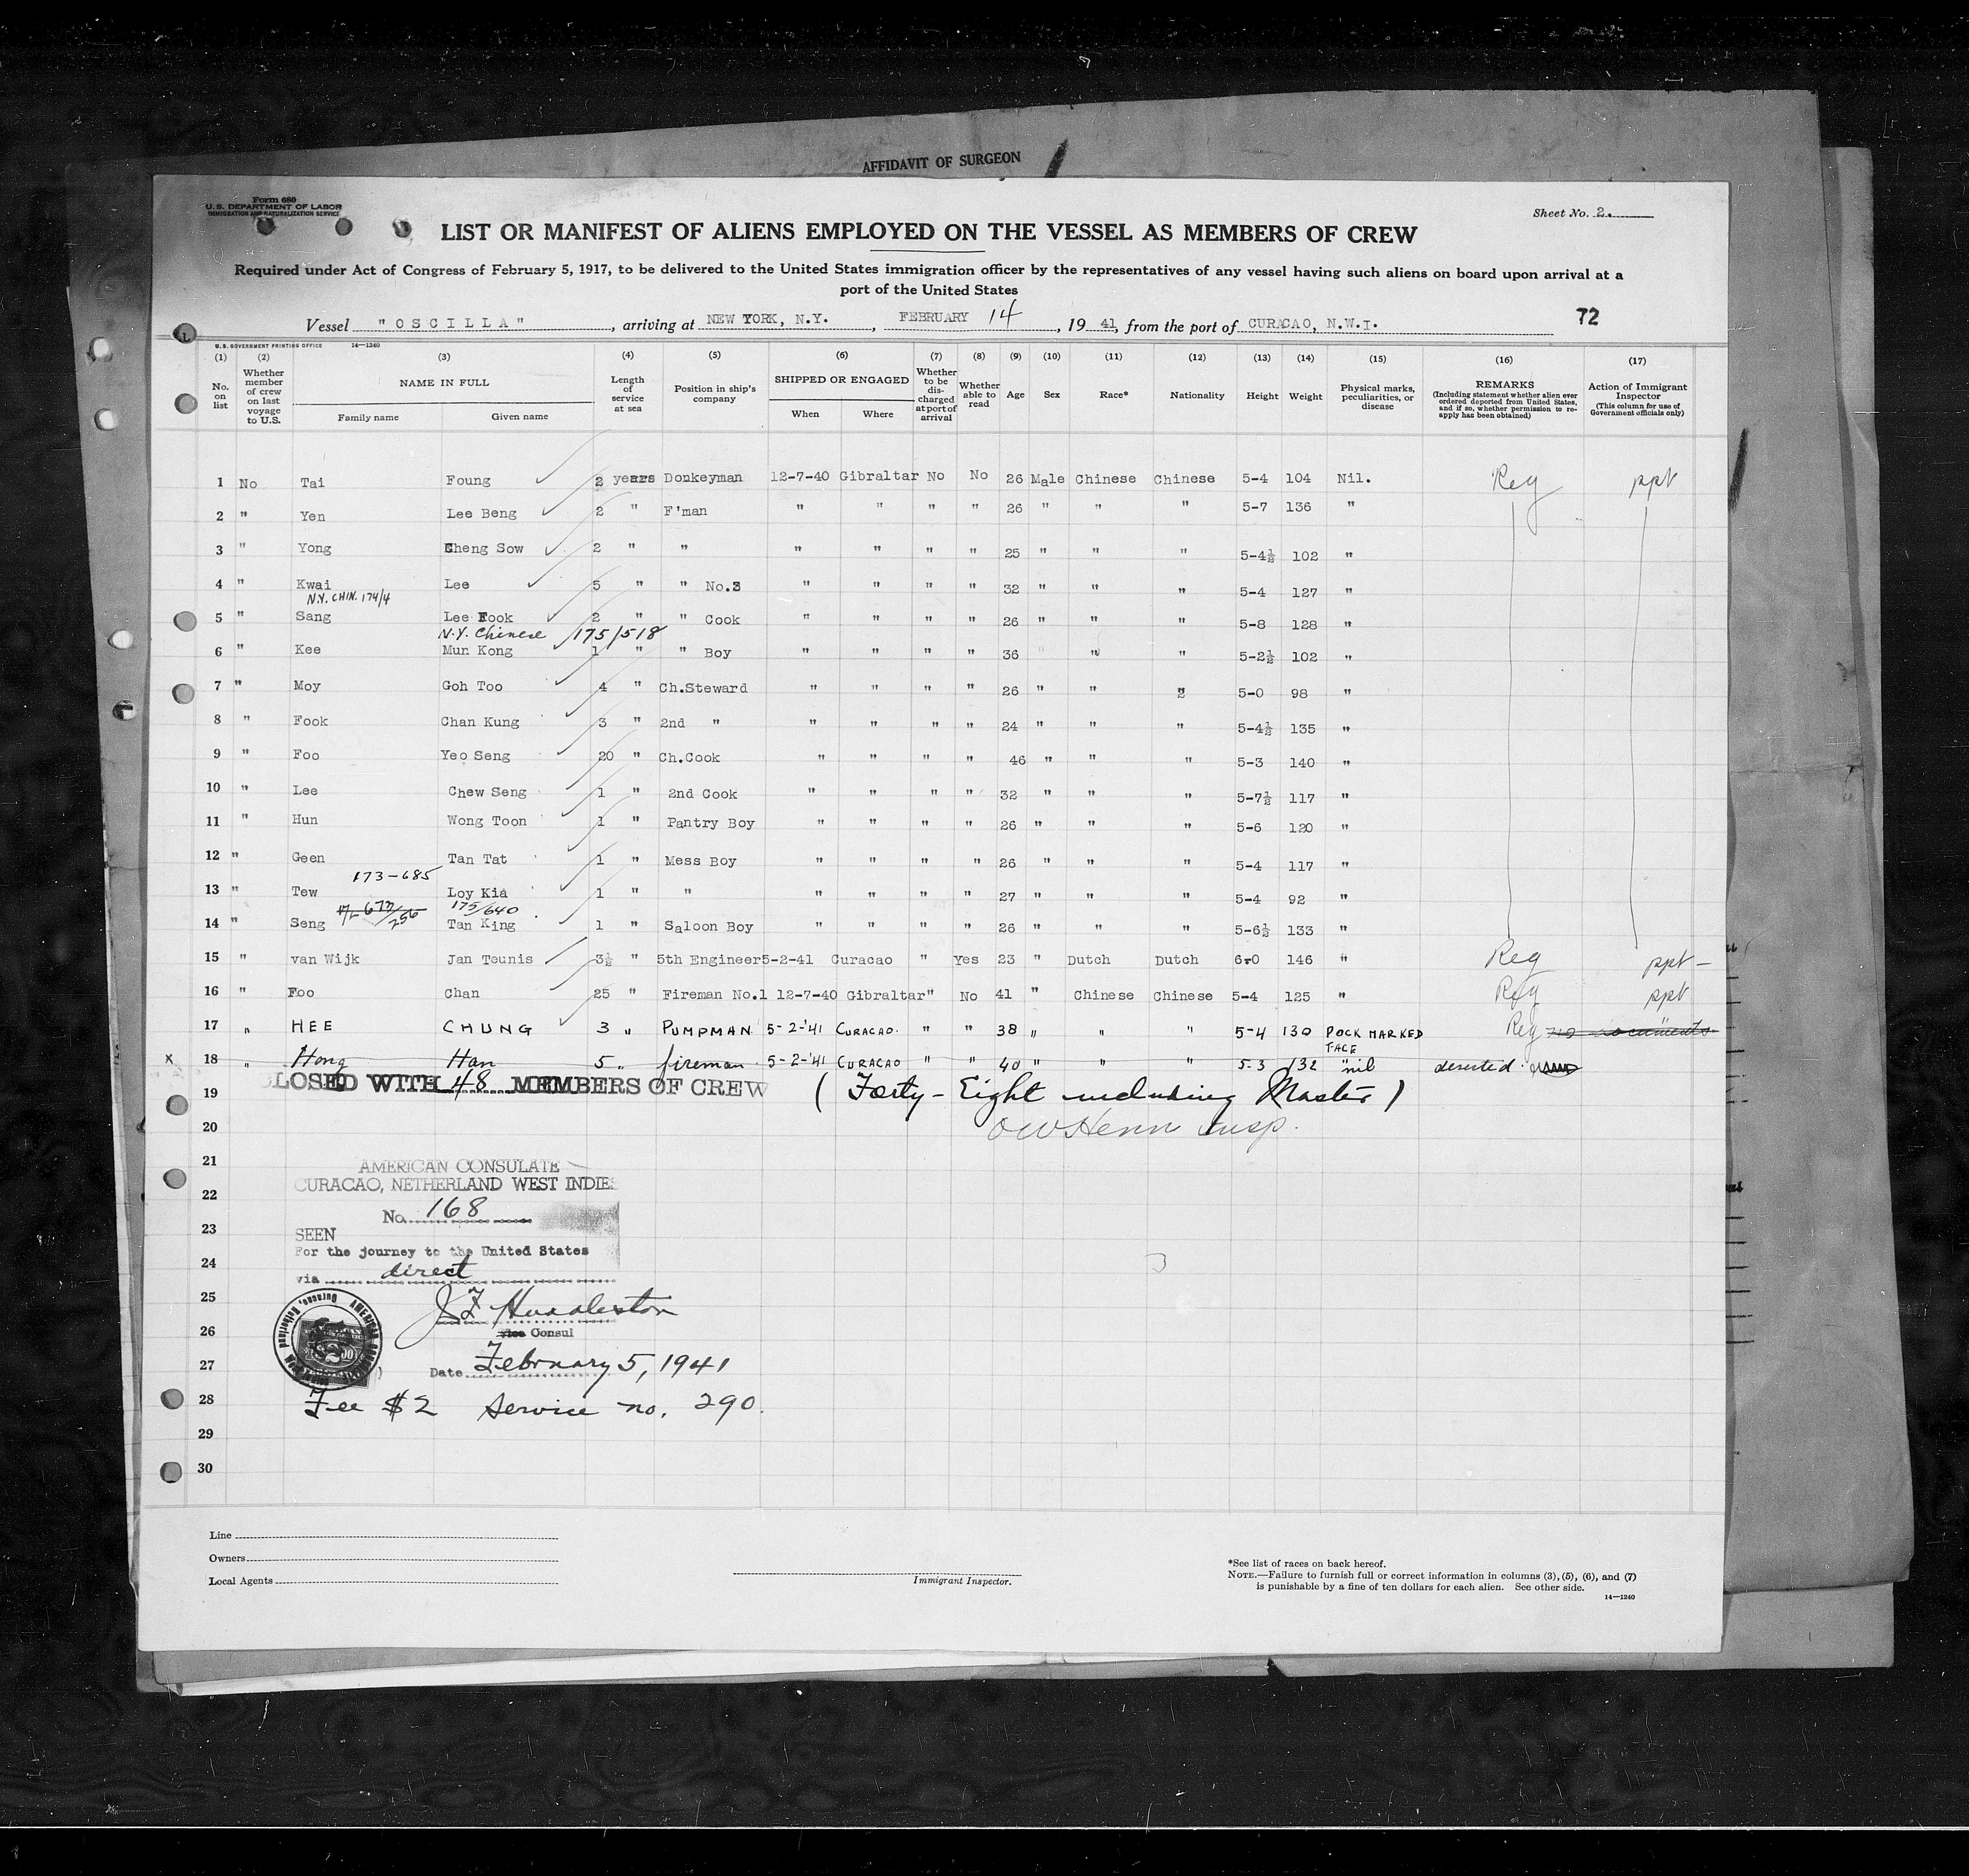 AFFIDAVIT OF SURGEON
Form 680
U.S. DEPARTMENT OF LABOR
IMMIGRATION AND NATURALIZATION SERVICE
Sheet No. 2.
LIST OR MANIFEST OF ALIENS EMPLOYED ON THE VESSEL AS MEMBERS OF CREW
Required under Act of Congress of February 5, 1917, to be delivered to the United States immigration officer by the representatives of any vessel having such aliens on board upon arrival at a
port of the United States
Vessel "OSCILLA", arriving at NEW YORK, N.Y., FEBRUARY 14, 1941, from the port of CURACAO, N.W.I. 72
U.S. GOVERNMENT PRINTING OFFICE 14—1240
(1) (2) (3) (4) (5) (6) (7) (8) (9) (10) (11) (12) (13) (14) (15) (16) (17)
No. on list
Whether member of crew on last voyage to U.S.
NAME IN FULL
Family name Given name
Length of service at sea
Position in ship's company
SHIPPED OR ENGAGED
When Where
Whether to be discharged at port of arrival
Whether able to read
Age
Sex
Race*
Nationality
Height
Weight
Physical marks, peculiarities, or disease
REMARKS
(Including statement whether alien ever ordered deported from United States, and if so, whether permission to reapply has been obtained)
Action of Immigrant Inspector
(This column for use of Government officials only)
1 No Tai Foung 2 years Donkeyman 12-7-40 Gibraltar No No 26 Male Chinese Chinese 5-4 104 Nil. Reg ppt
2 " Yen Lee Beng 2 " F'man " " " " 26 " " " 5-7 136 "
3 " Yong Cheng Sow 2 " " " " " " 25 " " " 5-4½ 102 "
4 " Kwai Lee 5 " " No.3 " " " " 32 " " " 5-4 127 "
N.Y. CHIN. 174/4
5 " Sang Lee Fook 2 " " Cook " " " " 26 " " " 5-8 128 "
N.Y. Chinese 175/518
6 " Kee Mun Kong 1 " " Boy " " " " 36 " " " 5-2½ 102 "
7 " Moy Goh Too 4 " Ch.Steward " " " " 26 " " " 5-0 98 "
8 " Fook Chan Kung 3 " 2nd " " " " " 24 " " " 5-4½ 135 "
9 " Foo Yeo Seng 20 " Ch.Cook " " " " 46 " " " 5-3 140 "
10 " Lee Chew Seng 1 " 2nd Cook " " " " 32 " " " 5-7½ 117 "
11 " Hun Wong Toon 1 " Pantry Boy " " " " 26 " " " 5-6 120 "
12 " Geen Tan Tat 1 " Mess Boy " " " " 26 " " " 5-4 117 "
173-685
13 " Tew Loy Kia 1 " " " " " " 27 " " " 5-4 92 "
175/640
14 " Seng Tan King 1 " Saloon Boy " " " " 26 " " " 5-6½ 133 "
15 " van Wijk Jan Teunis 3½ " 5th Engineer 5-2-41 Curacao " Yes 23 " Dutch Dutch 6-0 146 " Reg ppt -
16 " Foo Chan 25 " Fireman No.1 12-7-40 Gibraltar " No 41 " Chinese Chinese 5-4 125 " Reg ppt
17 " HEE CHUNG 3 " PUMPMAN 5-2-'41 CURACAO. " " 38 " " " 5-4 130 POCK MARKED FACE Reg no documents
x 18 " Hong Han 5 " fireman 5-2-'41 CURACAO " " 40 " " " 5-3 132 "nil deserted
CLOSED WITH 48 MEMBERS OF CREW (Forty-Eight including Master)
19
20 Insp.
21 AMERICAN CONSULATE
22 CURACAO, NETHERLAND WEST INDIES
No. 168
23 SEEN
For the journey to the United States
24 via direct
25 Huddleston
26 Vice Consul
27 Date February 5, 1941
28 Fee $2 Service no. 290.
29
30
Line
Owners
Local Agents
Immigrant Inspector.
*See list of races on back hereof.
NOTE.—Failure to furnish full or correct information in columns (3), (5), (6), and (7)
is punishable by a fine of ten dollars for each alien. See other side.
14—1240